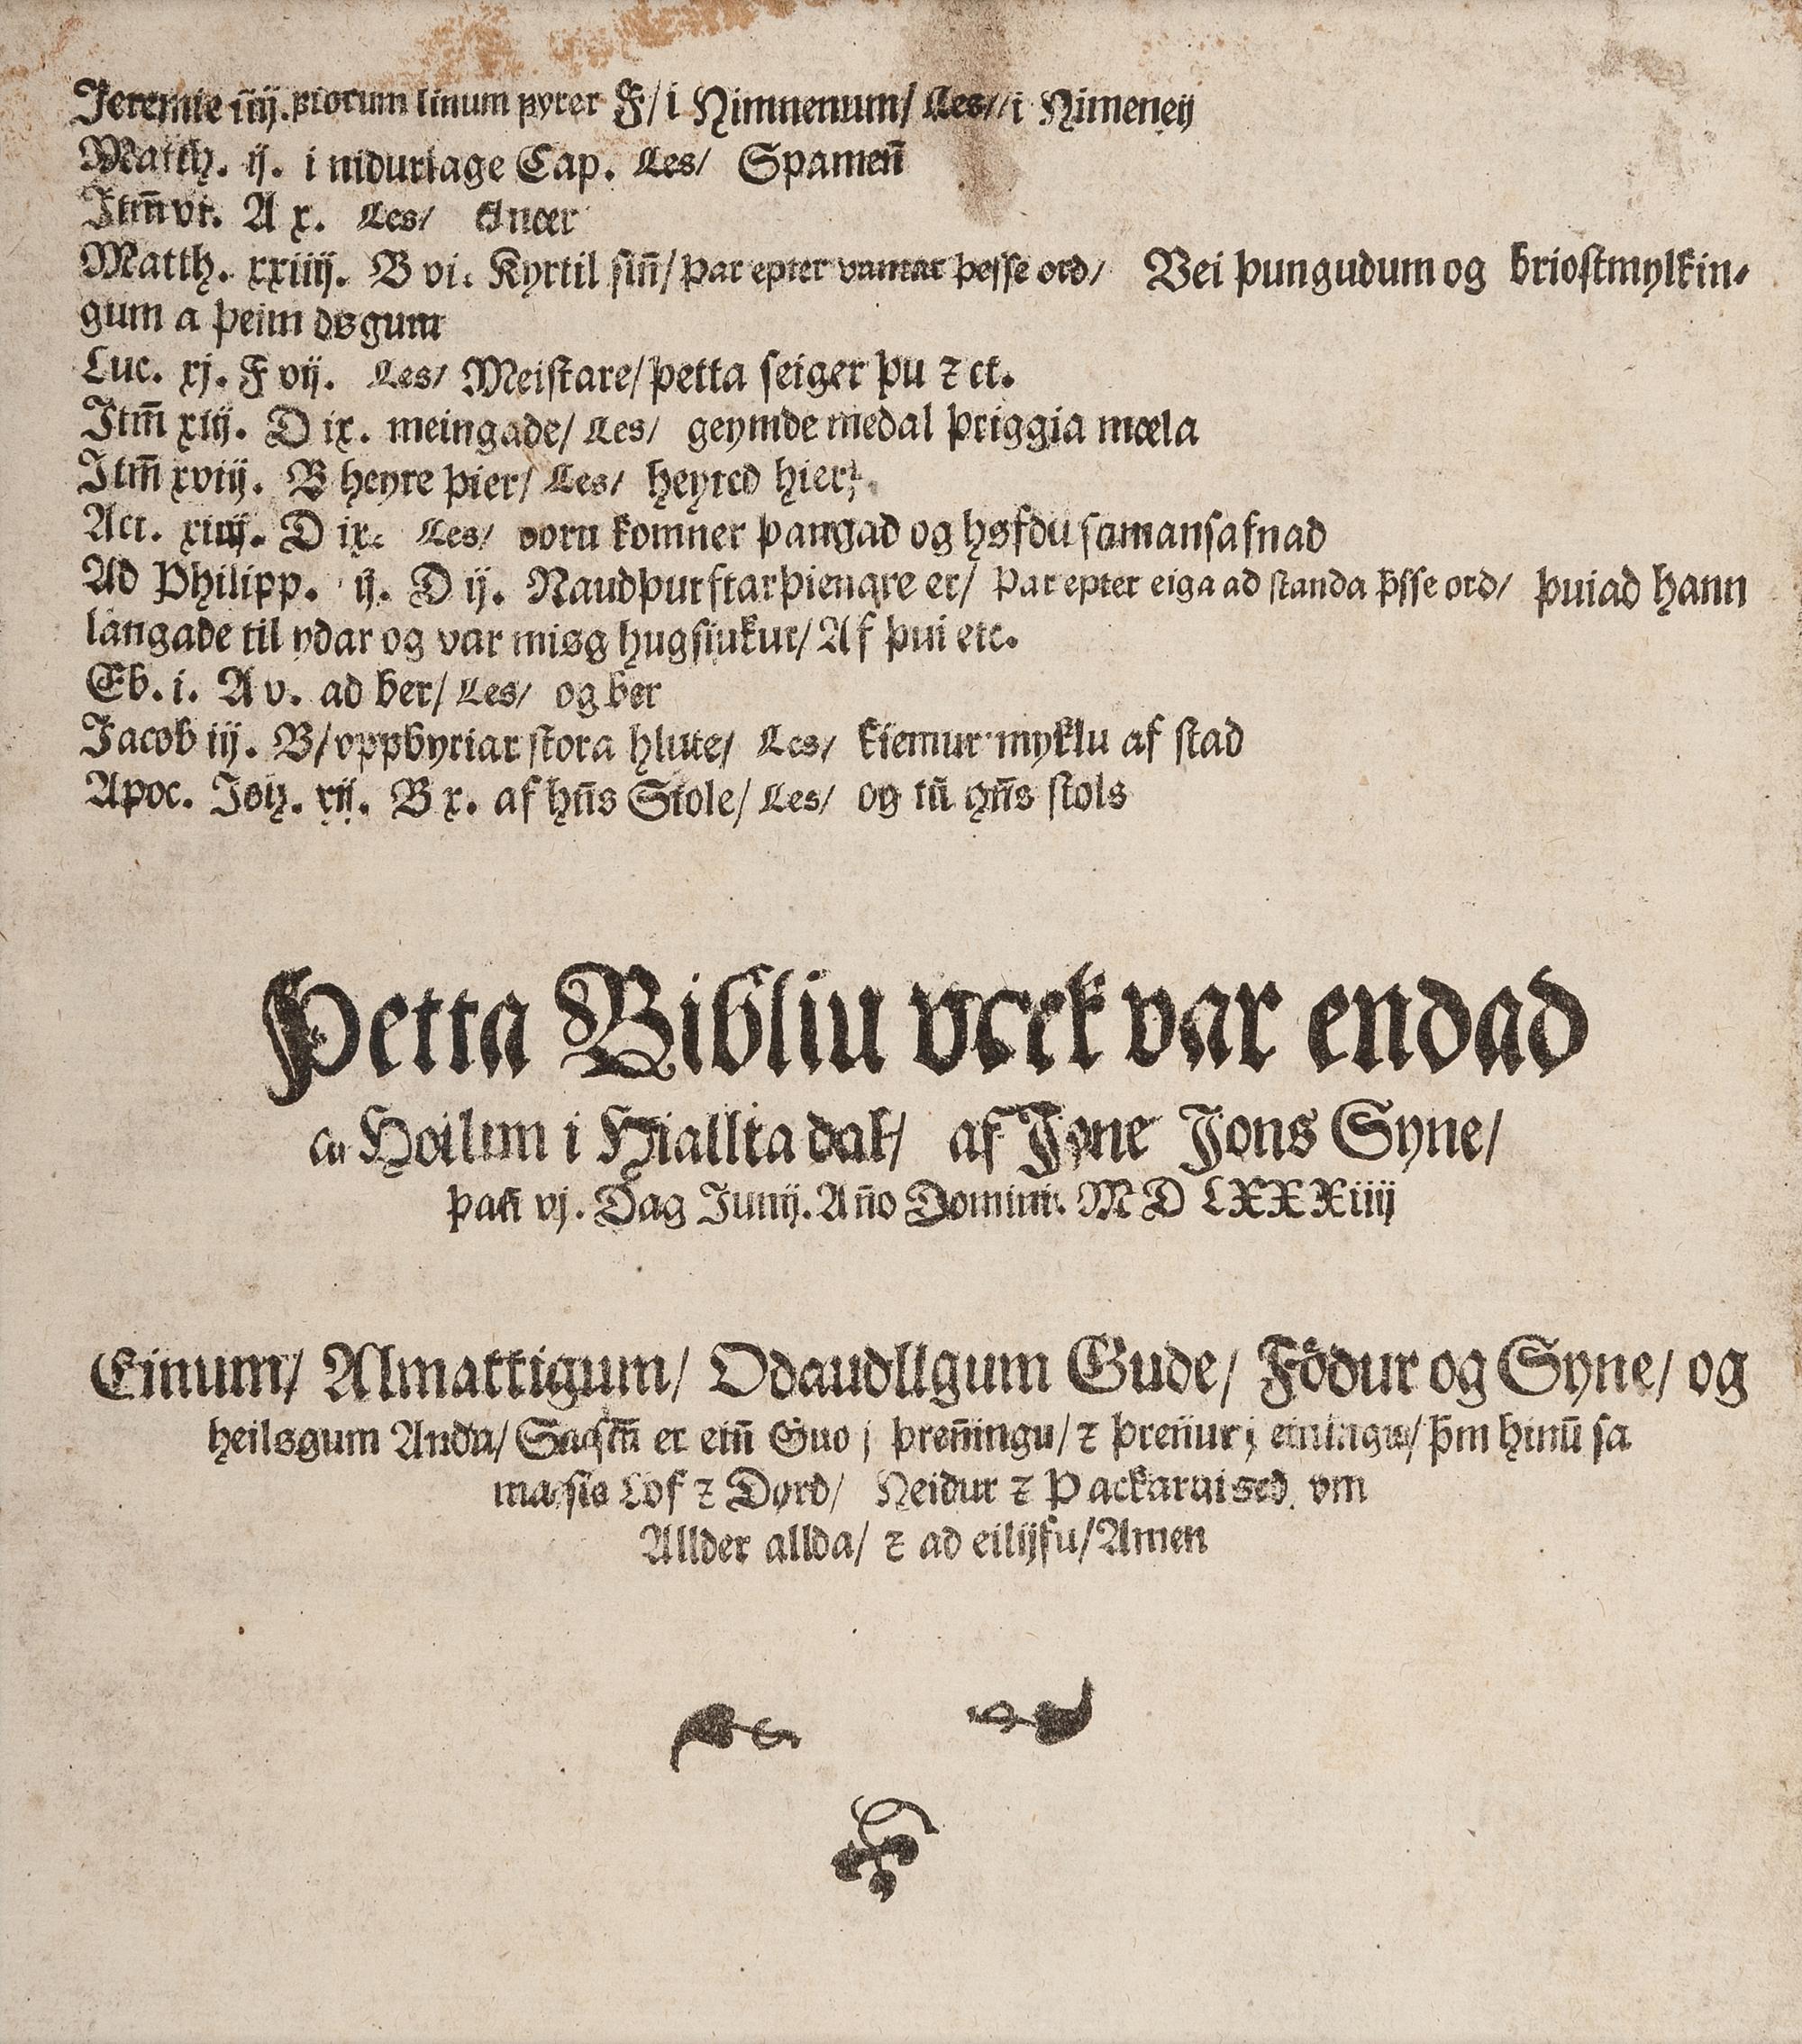 Jeremie iiij. Fiorum linum fyrer F/ i Himnenum/ Les// i Himeneij
Matth. ij. i nidurlage Cap. Les/ Spameñ
Itm̃ vi. A x. Les/
Matth. xxiiij. B vi. Kyrtil siñ/ Þar epter vantar þesse ord/ Vei þungudum og briostmylkin⸗
gum a þeim døgum
Luc. xj. F vij. Les/ Meistare/ þetta seiger þu ⁊ ct.
Itm̃ xiij. D ix. meingade/ Les/ geymde medal þriggia mœla
Itm̃ xviij. B heyre þier/ Les/ heyred hier
Act. xiiij. D ix. Les/ voru komner þangad og høfdu samansafnad
Ad Philipp. ij. D ij. Naudþurftar þienare er/ Þar epter eiga ad standa þ̄sse ord/ þuiad hann
langade til ydar og var miøg hugsiukur/ Af þui etc.
Eb. i. A v. ad ber/ Les/ og ber
Jacob iij. B/ vppbyriar stora hlute/ Les/ kiemur myklu af stad
Apoc. Joh. xij. B x. af hñs Stole/ Les/ og til hñs stols
Þetta Bibliu verk var endad
a Hoolum i Hiallta dal/ af Jone Jons Syne/
þañ vj. Dag Junij. Año Domini. M D LXXXiiij
Einum/ Almattigum/ Odaudligum Gude/ Födur og Syne/ og
heiløgum Anda/ Sa sem̃ er eiñ Gud j þreñingu/ ⁊ þreñur j einingu/ þm̄ hinū sa
ma sie Lof ⁊ Dyrd/ Heidur ⁊ Þackargiørd vm
Allder allda/ ⁊ ad eilijfu/ Amen